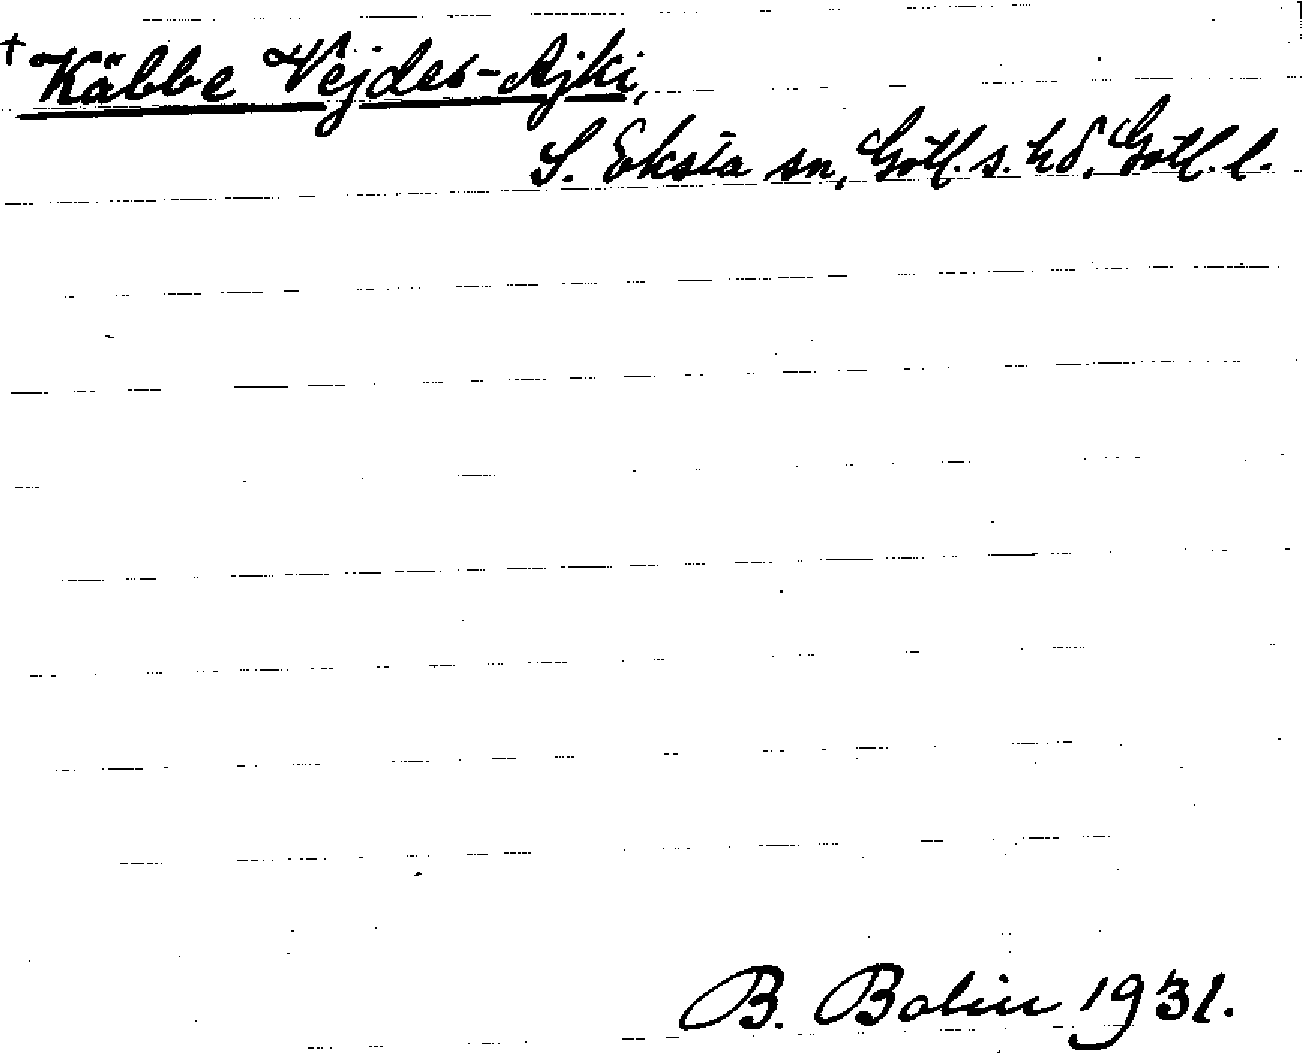 † Käbbe Vejdes-Ajki,
S. Eksta sn, Gotl. s. hd, Gotl. l.
B. Bolin 1931.